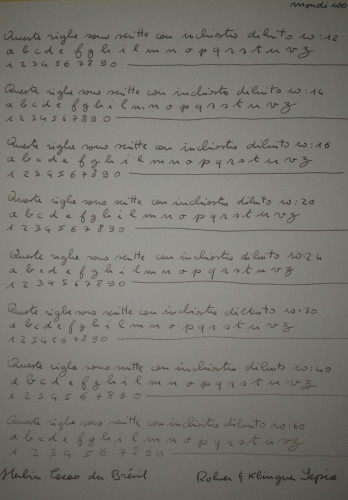 Queste righe sono scritte con inchiostro diluito 10:12
a b c d e f g h i l m n o p q r s t u v z
1 2 3 4 5 6 7 8 9 0
Queste righe sono scritte con inchiostro diluito 10:14
a b c d e f g h i l m n o p q r s t u v z
1 2 3 4 5 6 7 8 9 0
Queste righe sono scritte con inchiostro diluito 10:16
a b c d e f g h i l m n o p q r s t u v z
1 2 3 4 5 6 7 8 9 0
Queste righe sono scritte con inchiostro diluito 10:20
a b c d e f g h i l m n o p q r s t u v z
1 2 3 4 5 6 7 8 9 0
Queste righe sono scritte con inchiostro diluito 10:24
a b c d e f g h i l m n o p q r s t u v z
1 2 3 4 5 6 7 8 9 0
Queste righe sono scritte con inchiostro diluito 10:30
a b c d e f g h i l m n o p q r s t u v z
1 2 3 4 5 6 7 8 9 0
Queste righe sono scritte con inchiostro diluito 10:40
a b c d e f g h i l m n o p q r s t u v z
1 2 3 4 5 6 7 8 9 0
Queste righe sono scritte con inchiostro diluito 10:60
a b c d e f g h i l m n o p q r s t u v z
1 2 3 4 5 6 7 8 9 0
Herbin Cacao du Brésil Rohrer & Klingner Sepia